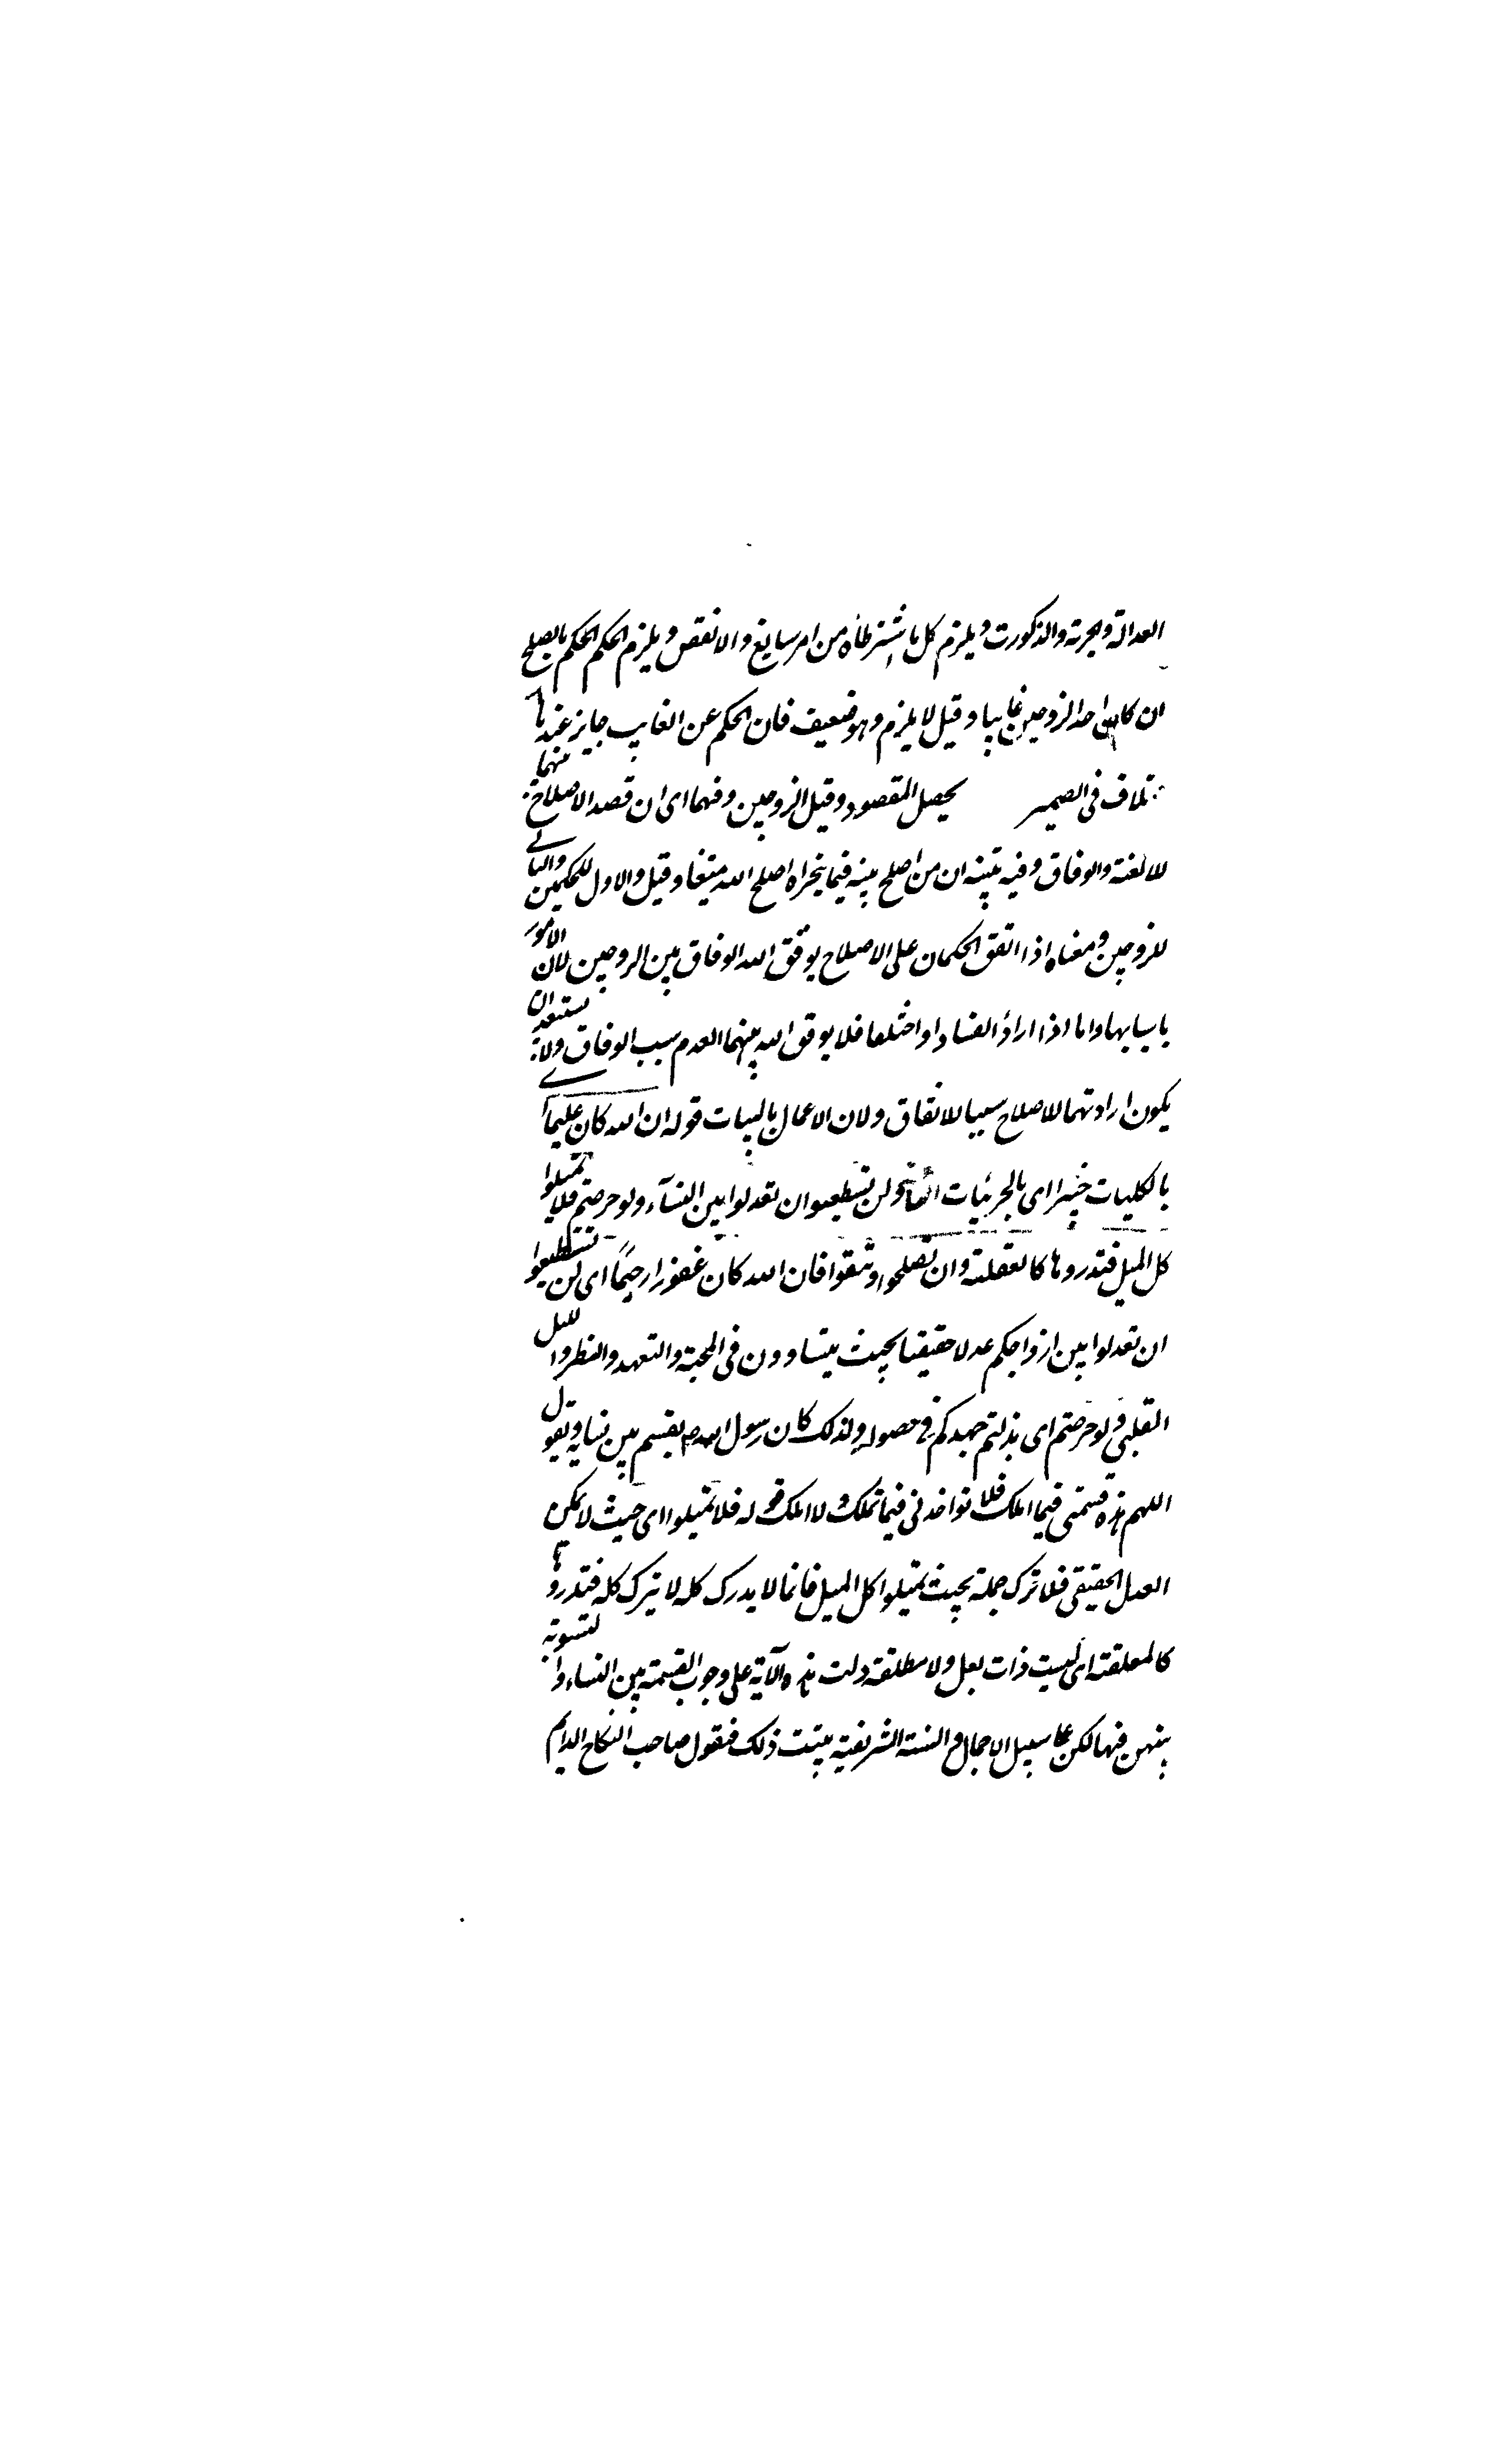 العدالة والحرية والذكورت ويلزم كل ما يشترطاه من امر سايغ والا نقض ويلزم الحكم الحكم بالصلح
ان كان احد الزوجين غايبا وقيل لا يلزم وهو ضعيف فان الحكم عن الغايب جايز عندنا
في الضمير يحصل المقصود وقيل الزوجين وفهما اى ان قصد الاصلاح منهما
للالفته والوفاق وفيه تنبيه ان من اصلح بينه فيما يتحراه اصلح الله مبتغا وقيل والاول للحكمين والثانى
للزوجين ومعناه اذا اتفق الحكمان على الاصلاح يوفق الله الوفاق بين الزوجين لان الامور
باسبابها واما اذا اراد الفساد او اختلفا فلا يوفق الله بينهما العدم سبب الوفاق ولا يستبعد ان
يكون ارادتهما للاصلاح سببا للاتفاق ولان الاعمال بالنيات قوله ان الله كان عليما
بالكليات خبيرا اى بالجزئيات ولن تستطيعوا ان تعدلوا بين النسآء ولو حرصتم فلا تميلوا
كل الميل فتذروها كالمعلقة وان تصلحوا وتتقوا فان الله كان غفورا رحيما اى لن تستطيعوا
ان تعدلوا بين ازواجكم عدلا حقيقيا بحيث يتساوون في المحبة والتعهد والنظر والميل
القلبى ولو حرصتم اى بذلتم جهدكم في حصوله ولذلك كان رسول الله ص يقسم بين نسايه ويقول
اللهم هذه قسمتى فيما املك فلا تواخذنى فيما تملك ولا املك قوله فلا تميلوا اى حيث لا يمكن
العدل الحقيقى فلا تترك جملة بحيث تميلوا كل الميل فانما لا يدرك كله لا يترك كله فتذروها
كالمعلقته اى ليست ذات بعل ولا مطلقة دلت هذه الآية على وجوب القسمة بين النساء والتسوية
بينهن فيها لكن على سبيل الاجمال والسنة الشريفة بينت ذلك فنقول صاحب النكاح الدايم